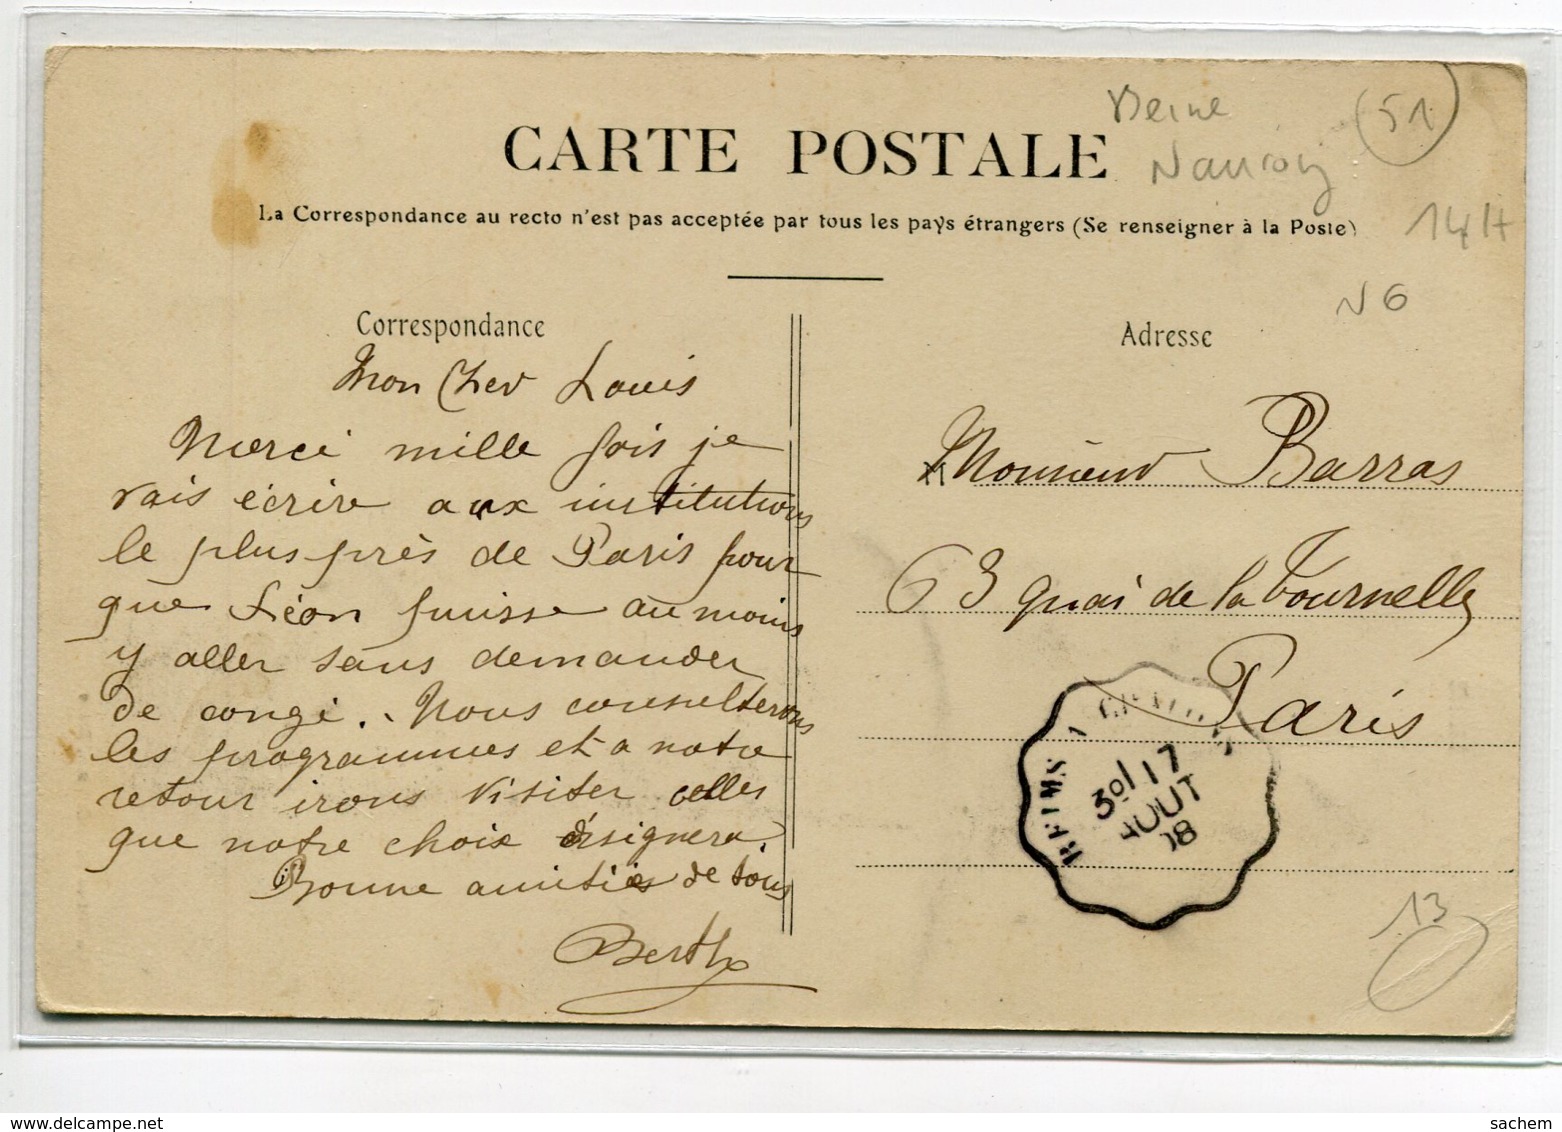 Beine
Nauroy
(51)
CARTE POSTALE
La Correspondance au recto n'est pas acceptée par tous les pays étrangers (Se renseigner à la Poste)
14 H
N 6
Correspondance
Mon Cher Louis
Merci mille fois je
vais écrire aux institutions
le plus près de Paris pour
que Léon puisse au moins
y aller sans demander
de congé. Nous consulterons
les programmes et a notre
retour irons visiter celles
que notre choix désignera.
Bonne amitiés de tous
Berthe
Adresse
Monsieur Barras
63 quai de la Tournelle
Paris
REIMS A
3º/17
AOUT
08
13
sachem